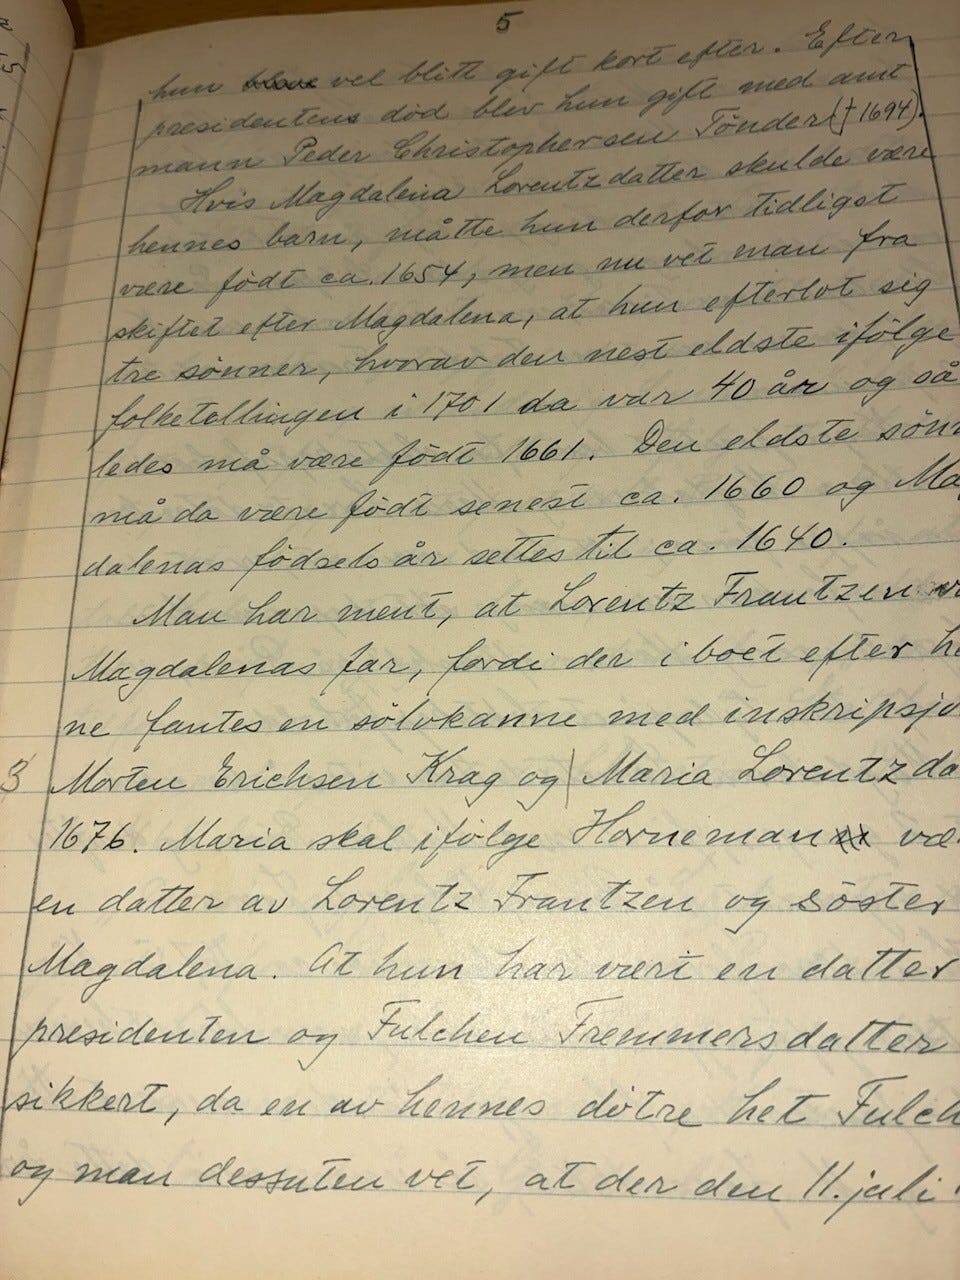 5
hun vel blitt gift kort efter. Efter
presidentens död blev hun gift med amt
mann Peder Christophersen Tönder († 1694).
Hvis Magdalena Lorentzdatter skulde være
hennes barn, måtte hun derfor tidligst
være födt ca. 1654, men nu vet man fra
skiftet efter Magdalena, at hun efterlot sig
tre sönner, hvorav den nest eldste ifölge
folketellingen i 1701 da var 40 år og så
ledes må være födt 1661. Den eldste sönn
må da være födt senest ca. 1660 og Mag
dalenas födselsår settes til ca. 1640.
Man har ment, at Lorentz Frantzen v
Magdalenas far, fordi der i boet efter he
ne fantes en sölvkanne med inskripsjo
3 Morten Erichsen Krag og | Maria Lorentzda
1676. Maria skal ifölge Horneman væ
en datter av Lorentz Frantzen og söster
Magdalena. At hun har vært en datter
presidenten og Fulchen Tremmersdatter
sikkert, da en av hennes dötre het Fulch
og man dessuten vet, at der den 11. juli